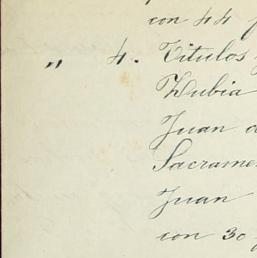 con 44
" 4. Titulos
Dubia
Juan
Sacrame
Juan
con 30